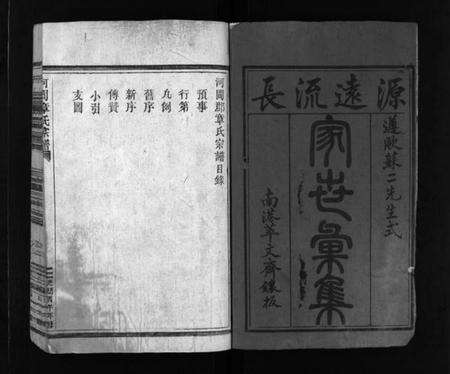 源遠流長
遵歐蘇二先生式
家世彙集
南港萃文齋鐫板
河間郡章氏宗譜目錄
預事
行第
凡例
舊序
新序
傳贊
小引
支圖
河間章氏宗譜